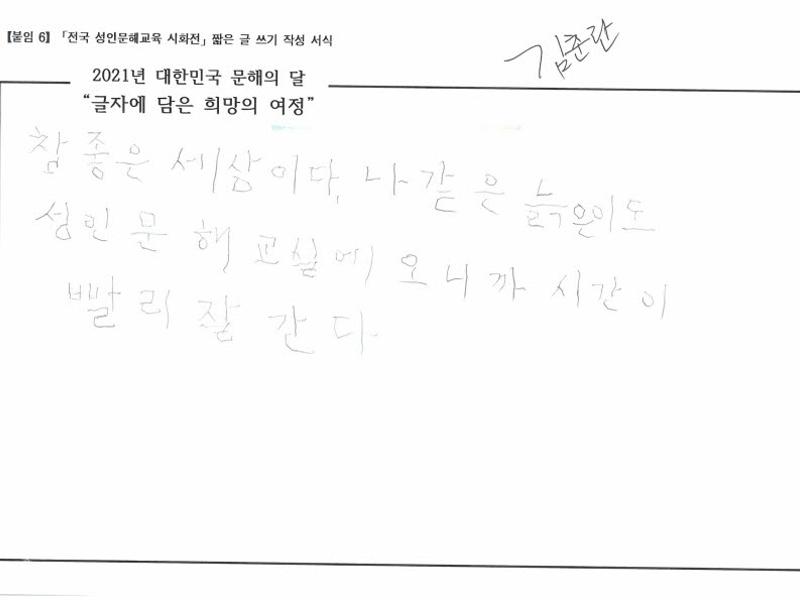 【붙임 6】 「전국 성인문해교육 시화전」 짧은 글 쓰기 작성 서식
김춘란
2021년 대한민국 문해의 달
“글자에 담은 희망의 여정”
참 좋은 세상이다. 나 같은 늙은이도
성인 문해 교실에 오니까 시간이
빨리 잘 간다.